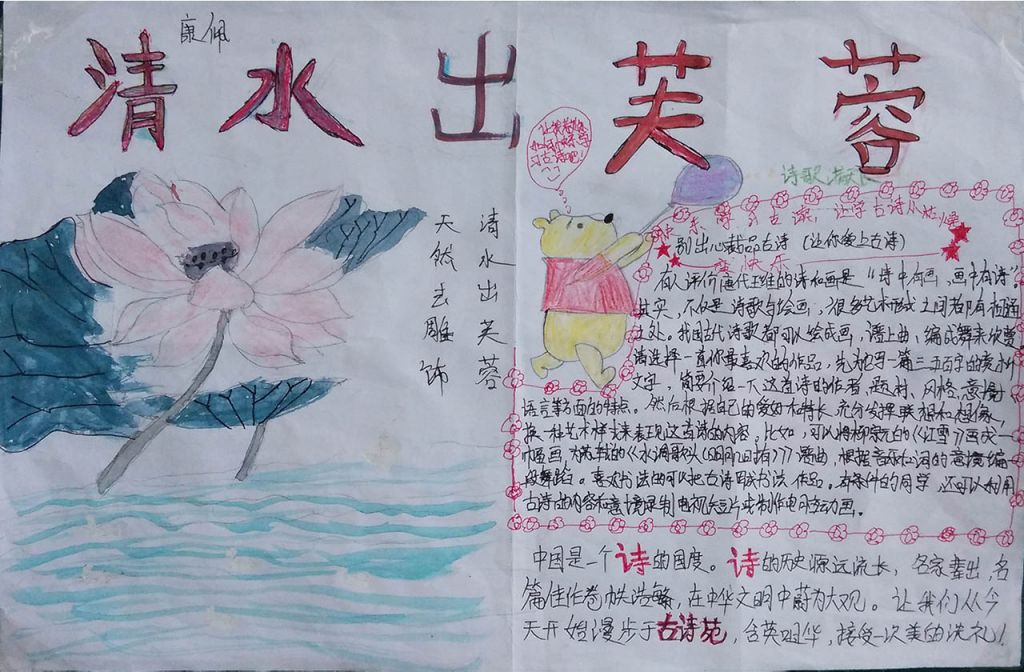 康佩
清水出芙蓉
清水出芙蓉
天然去雕饰
诗歌
别出心裁品古诗（让你爱上古诗）
有人评价唐代王维的诗和画是“诗中有画，画中有诗”
其实，不仅是诗歌与绘画，很多艺术形式之间都具有相通
之处。我国古代诗歌都可以绘成画，谱上曲，编成舞来欣赏
请选择一首你最喜欢的作品，先为它写一篇三五百字的赏析
文字，简要介绍一下这首诗的作者、题材、风格、意境
语言等方面的特点。然后根据自己的爱好和特长，充分发挥联想和想像，
换一种艺术样式来表现这首诗的内容。比如，可以将柳宗元的《江雪》画成一
幅画，为苏轼的《水调歌头（明月几时有）》谱曲，根据音乐和词的意境编
段舞蹈。喜好书法的可以把古诗写成书法作品。有条件的同学，还可以利用
古诗的内容和意境录制电视短片或制作电脑动画。
中国是一个诗的国度。诗的历史源远流长，名家辈出，名
篇佳作卷帙浩繁，在中华文明中蔚为大观。让我们从今
天开始漫步于古诗苑，含英咀华，接受一次美的洗礼！